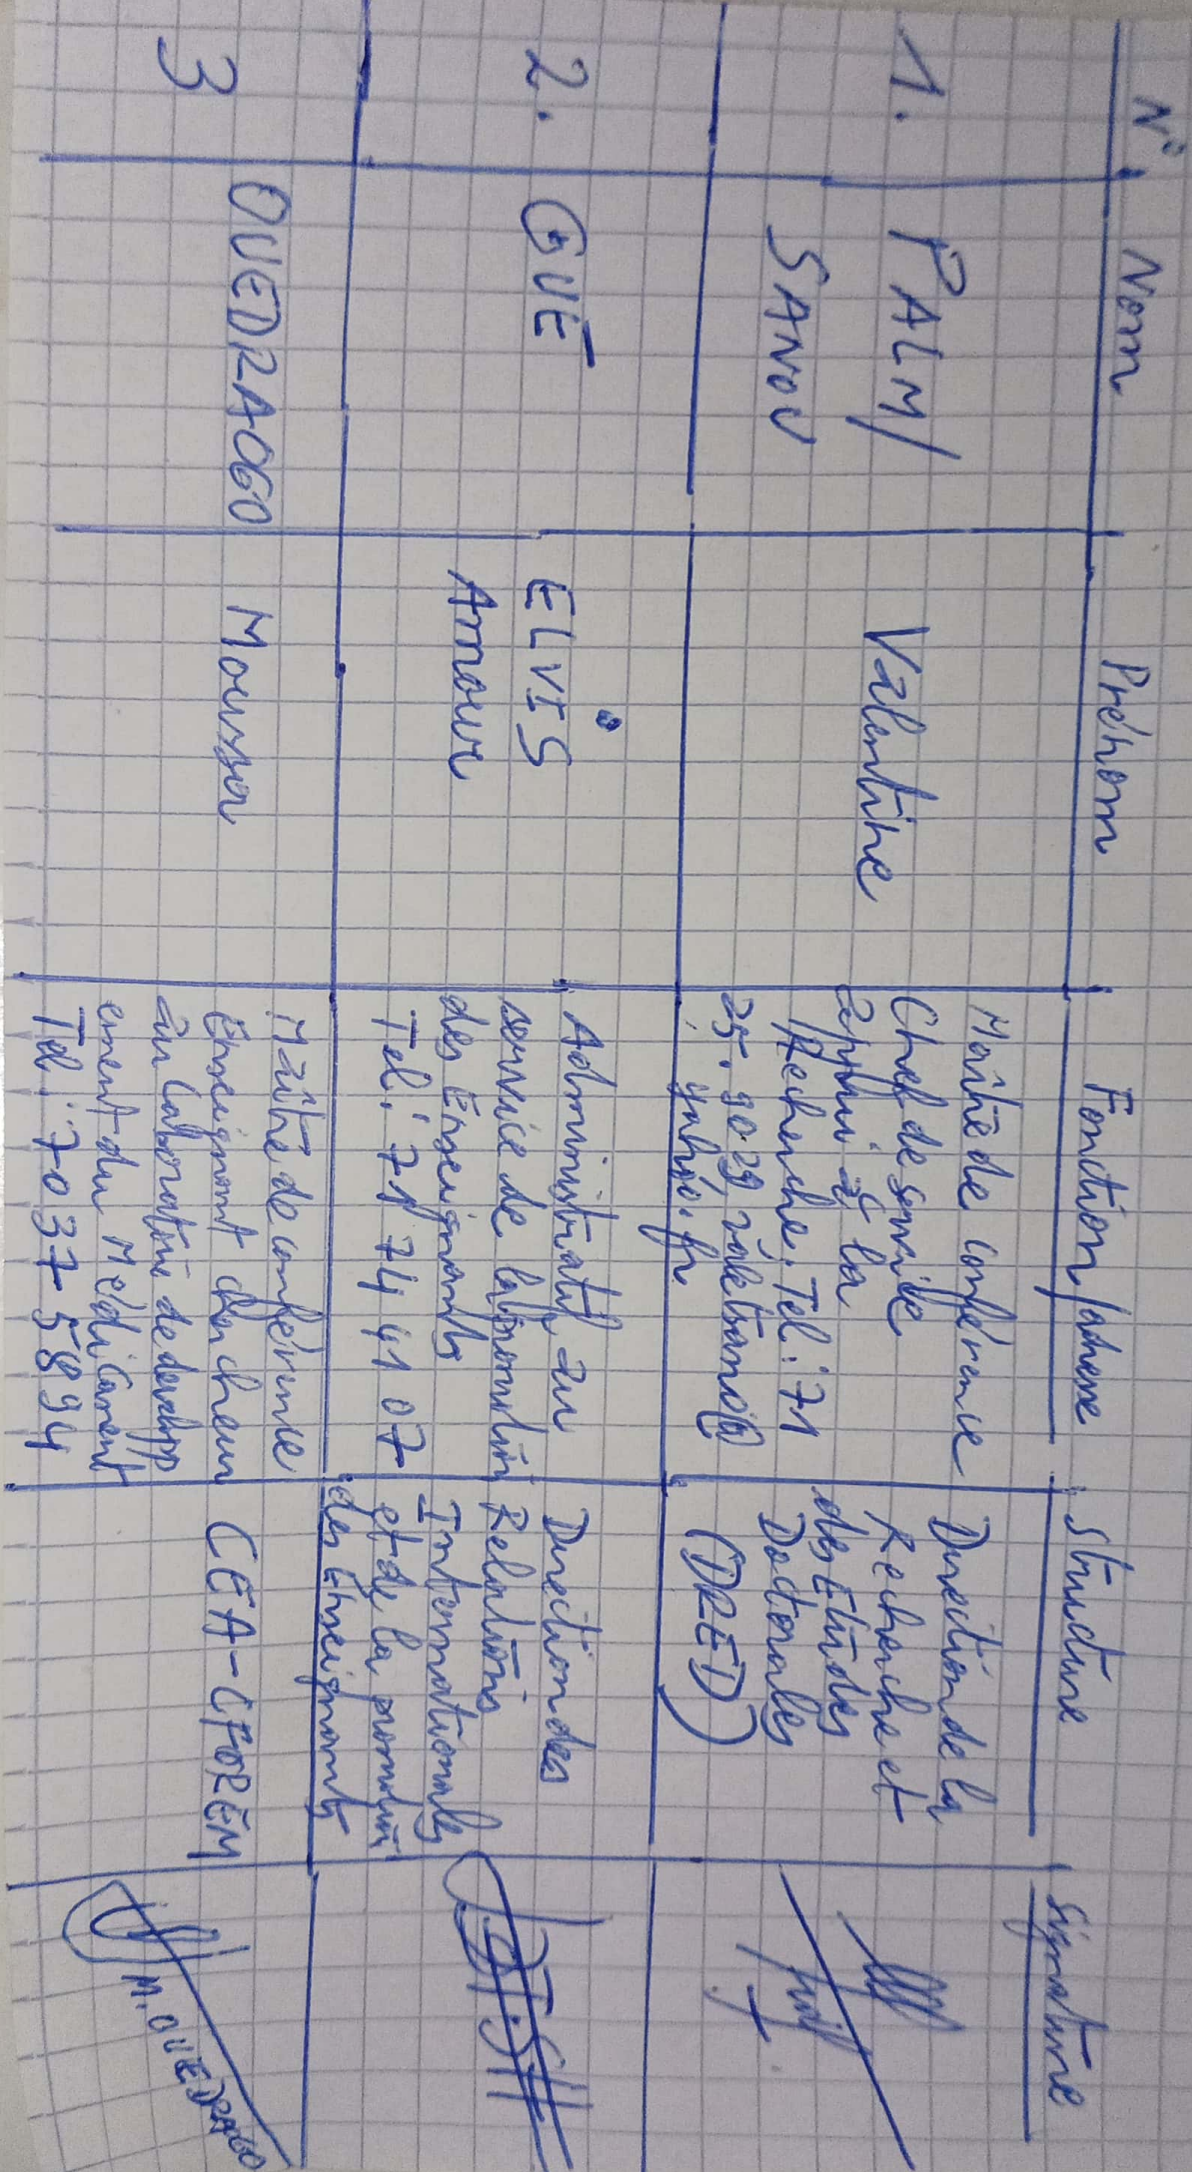 N° Nom Prénom Fonction/adresse Structure Signature
1. PALM/
SANOU
Valentine
Maître de conférence
Chef de service
appui à la
Recherche, Tel: 71
25. 90 29, valetsano@
yahoo.fr
Direction de la
Recherche et
des Etudes
Doctorales
(DRED)
2. GUE
ELVIS
Amour
Administratif au
service de la promotion
des Enseignants
Tel: 71 74 41 07
Direction des
Relations
Internationales
et de la promotion
des Enseignants
3 OUEDRAOGO
Moussa
Maître de conférence
Enseignant chercheur
au laboratoire de develop
ement du Médicament
Tel: 70 37 58 94
CEA-CFOREM
M. OUEDRAOGO